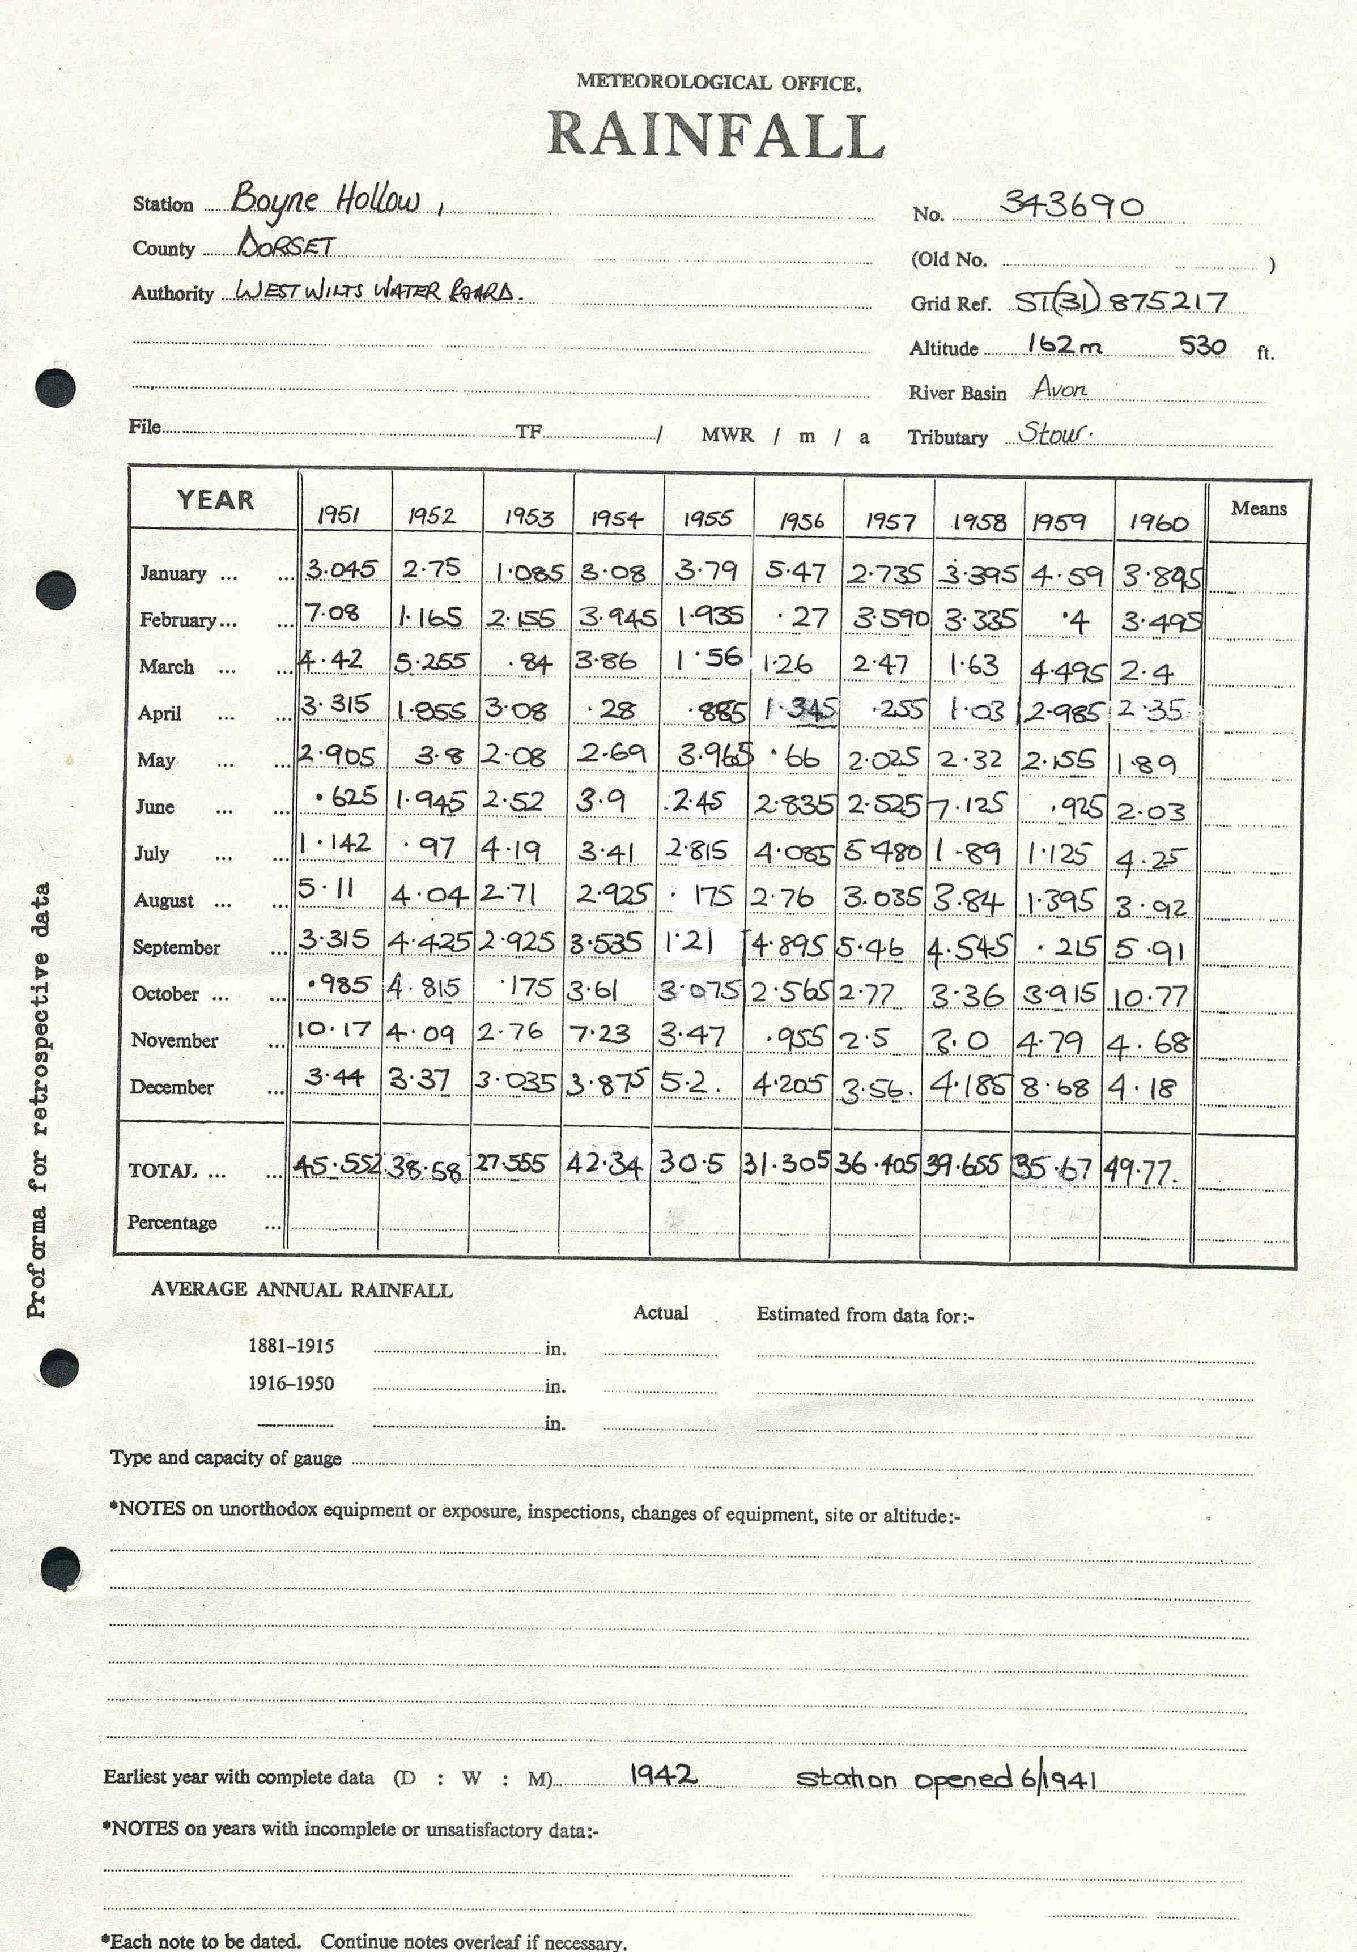 METEOROLOGICAL OFFICE.
RAINFALL
Station Boyne Hollow,
No. 343690
County DORSET
(Old No. )
Authority WEST WILTS WATER BOARD.
Grid Ref. ST(31) 875217
Altitude 162m 530 ft.
River Basin Avon
File TF / MWR / m / a Tributary Stour.
YEAR 1951 1952 1953 1954 1955 1956 1957 1958 1959 1960 Means
January ... ... 3.045 2.75 1.085 3.08 3.79 5.47 2.735 3.395 4.59 3.895
February... ... 7.08 1.165 2.155 3.945 1.935 .27 3.590 3.335 .4 3.495
March ... ... 4.42 5.255 .84 3.86 1.56 1.26 2.47 1.63 4.495 2.4
April ... ... 3.315 1.955 3.08 .28 .885 1.345 .255 1.03 2.985 2.35
May ... ... 2.905 3.8 2.08 2.69 3.965 .66 2.025 2.32 2.155 1.89
June ... ... .625 1.945 2.52 3.9 2.45 2.835 2.525 7.125 .925 2.03
July ... ... 1.142 .97 4.19 3.41 2.815 4.085 5.480 1.89 1.125 4.25
August ... ... 5.11 4.04 2.71 2.925 .175 2.76 3.035 3.84 1.395 3.92
September ... 3.315 4.425 2.925 3.535 1.21 4.895 5.46 4.545 .215 5.91
October ... ... .985 4.815 .175 3.61 3.075 2.565 2.77 3.36 3.915 10.77
November ... 10.17 4.09 2.76 7.23 3.47 .955 2.5 3.0 4.79 4.68
December ... 3.44 3.37 3.035 3.875 5.2. 4.205 3.56. 4.185 8.68 4.18
TOTAL ... ... 45.552 38.58 27.555 42.34 30.5 31.305 36.405 39.655 35.67 49.77.
Percentage ...
Proforma for retrospective data
AVERAGE ANNUAL RAINFALL
Actual Estimated from data for:-
1881-1915 in.
1916-1950 in.
in.
Type and capacity of gauge
*NOTES on unorthodox equipment or exposure, inspections, changes of equipment, site or altitude:-
Earliest year with complete data (D : W : M) 1942 station opened 6/1941
*NOTES on years with incomplete or unsatisfactory data:-
*Each note to be dated. Continue notes overleaf if necessary.